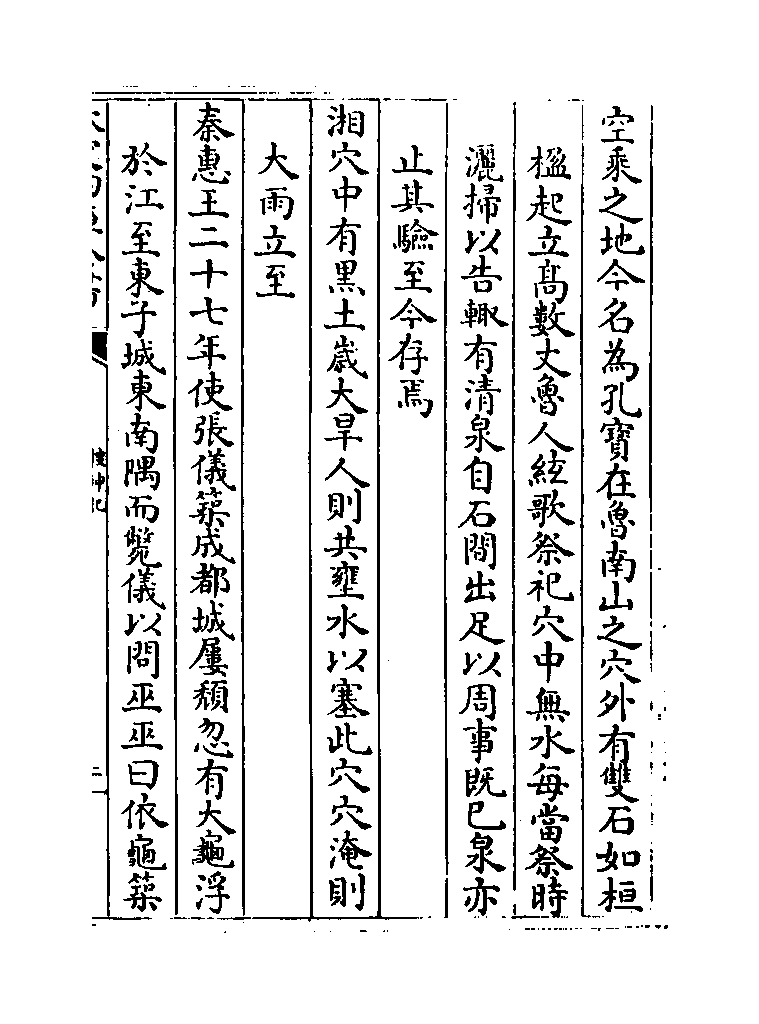 空乘之地今名為孔寶在魯南山之穴外有雙石如桓
楹起立髙數丈魯人絃歌祭祀穴中無水每當祭時
灑掃以告輙有清泉自石間出足以周事既巳泉亦
止其驗至今存焉
湘穴中有黒土歳大旱人則共壅水以塞此穴穴淹則
大雨立至
秦惠王二十七年使張儀築成都城屢頽忽有大龜浮
於江至東子城東南隅而斃儀以問巫巫曰依龜築
搜神記